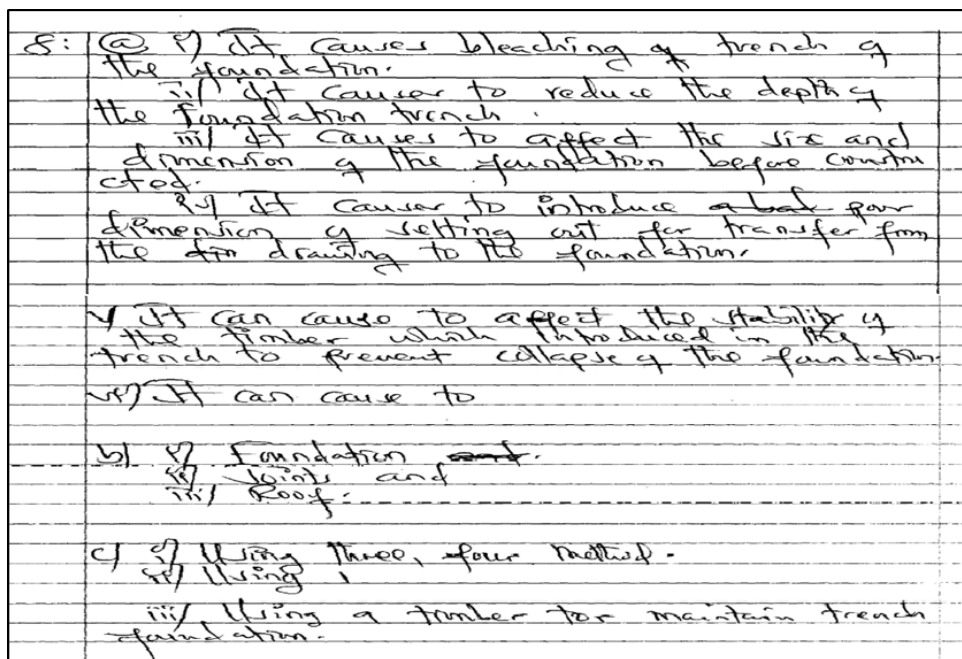 8: (a) i) It causes bleaching of trench of
the foundation.
ii/ It causes to reduce the depth of
the foundation trench.
iii/ It causes to affect the size and
dimension of the foundation before constru
cted.
iv) It causes to introduce poor
dimension of setting out for transfer from
the drawing to the foundation.
v/ It can cause to affect the stability of
the timber which introduced in the
trench to prevent collapse of the foundation.
vi) It can cause to
b) i) Foundation
ii) Joints and
iii/ Roof.
c) i) Using three, four method.
ii) Using
iii/ Using a timber to maintain trench
foundation.